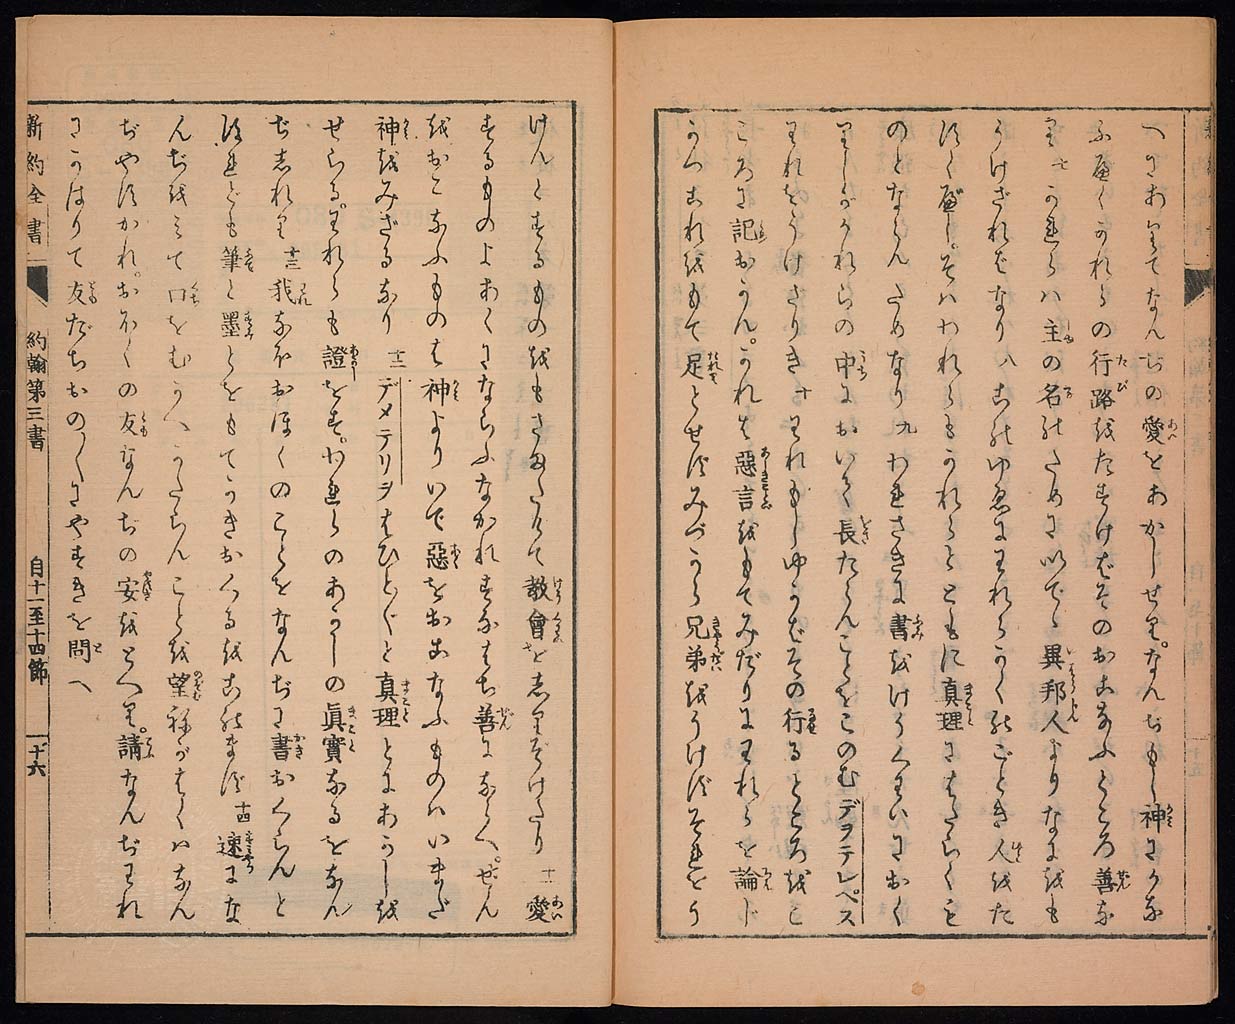 へにありてなんぢの愛をあかしせり。なんぢもし神にかな
ふべくかれらの行路をたすけばそのおこなふところ善な
り 七 かれらハ主の名のために以でゝ異邦人よりなにをも
うけざればなり 八 このゆゑにわれらかくのごとき人をた
すくべし。そハわれらもかれらとともに真理にはたらくも
のとならんためなり 九 われさきに書をけうくわいにおく
りしがかれらの中において長たらんことをこのむデヲテレペス
われをうけざりき 十 われもしゆかばその行るところをこ
ころに記おかん。かれは惡言をもてみだりにわれらを論じ
かつこれをもて足とせずみづから兄弟をうけずそれをう
けんとするものをもさまたげて教會をしりぞけたり 十一 愛
するものよあくにならふなかれすなはち善にならへ。ぜん
をおこなふものは神よりいで惡をおこなふものハいまだ
神をみざるなり 十二 デメテリヲはひとびとと真理とにあかしを
せらる。われらも證をす。われらのあかしの眞實なるをなん
ぢしれり 十三 我なほおほくのことをなんぢに書おくらんと
すれども筆と墨とをもてかきおくるをこのまず 十四 速にな
んぢをみて口をむかへかたらん ことを望ねがはくハなん
ぢやすかれ。おほくの友なんぢの安をとへり。請なんぢわれ
にかはりて友だちおの〱にやすきを問へ
新約全書 約翰第三書 自十一至十四節 十六